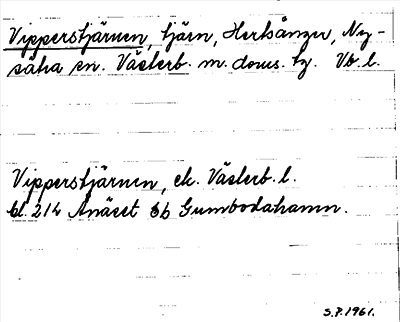 Vipperstjärnen, tjärn, Hertsånger, Ny-
sätra sn. Västerb. m. doms. tg. Vb. l.
Vipperstjärnen, ek. Västerb. l.
bl. 214 Ånäset Sb Gumbodahamn.
S.P. 1961.